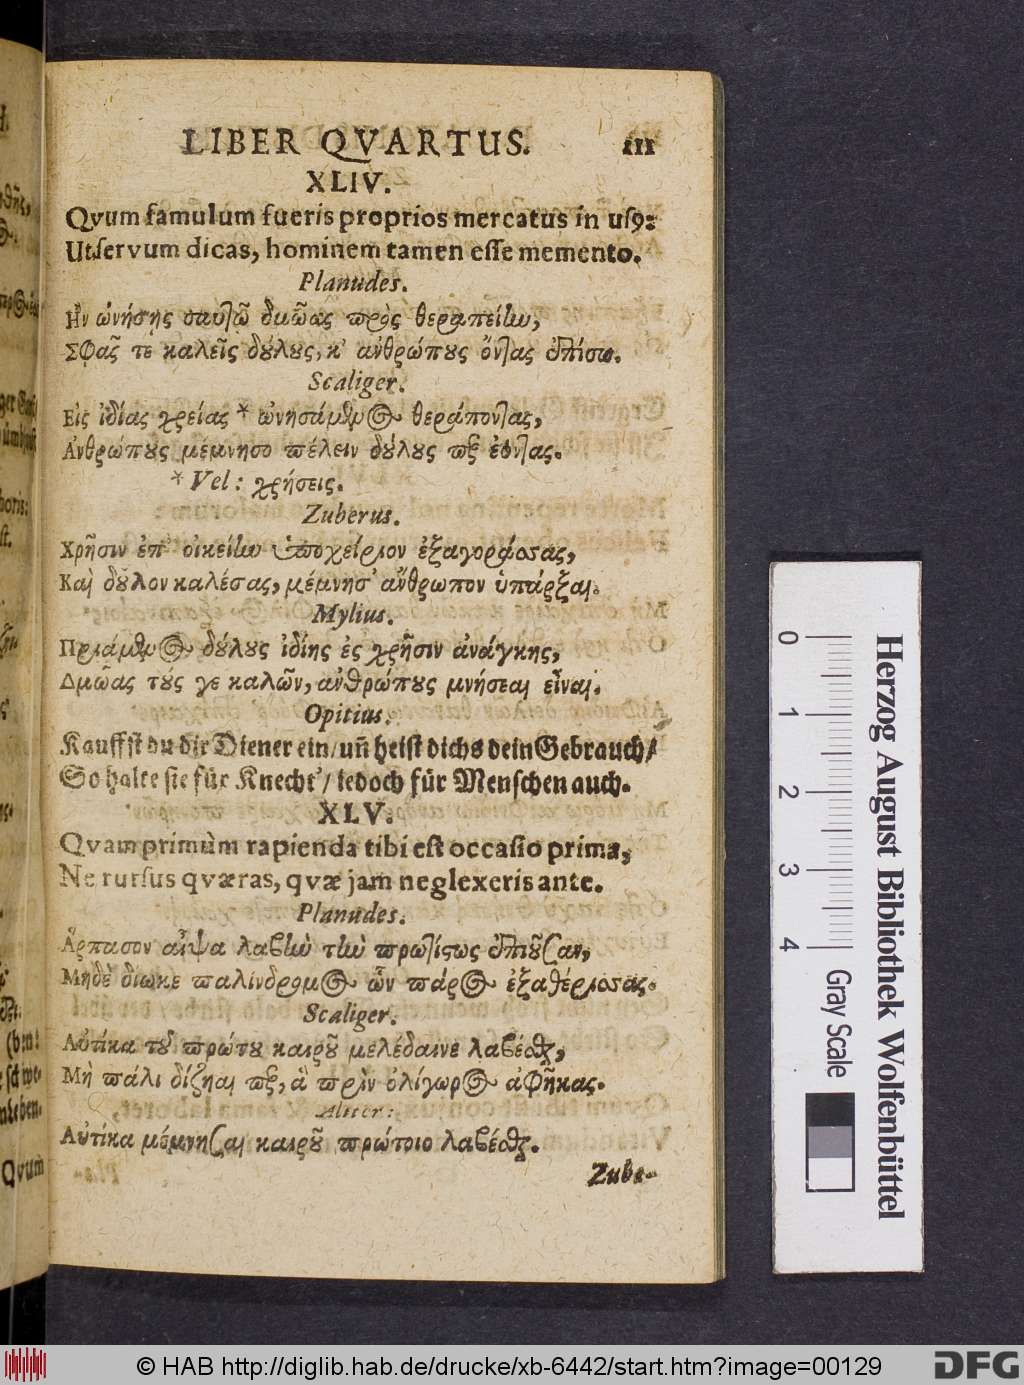 LIBER QVARTUS. 111
XLIV.
Qvum famulum fueris proprios mercatus in usꝰ:
Ut servum dicas, hominem tamen esse memento.
Planudes.
Ἢν ὠνήσῃς σαυτῷ δμῶας πρὸς θεραπείην,
Σφᾶς τε καλεῖς δούλους, κ' ἀνθρώπους ὄντας ὀπίσω.
Scaliger.
Εἰς ἰδίας χρείας * ὠνησάμενος θεράποντας,
Ἀνθρώπους μέμνησο πέλειν δούλους περ ἐόντας.
* Vel: χρήσεις.
Zuberus.
Χρῆσιν ἐπ' οἰκείην ὑποχείριον ἐξαγοράσας,
Καὶ δοῦλον καλέσας, μέμνησ' ἄνθρωπον ὑπάρξαι.
Mylius.
Πριάμενος δούλους ἰδίης ἐς χρῆσιν ἀνάγκης,
Δμῶας τούς γε καλῶν, ἀνθρώπους μνήσεαι εἶναι.
Opitius.
Kauffst du dir Diener ein/ un̄ heist dichs dein Gebrauch/
So halte sie für Knecht'/ iedoch für Menschen auch.
XLV.
Qvam primùm rapienda tibi est occasio prima,
Ne rursus qværas, qvæ jam neglexeris ante.
Planudes.
Ἅρπασον αἶψα λαβὴν τὴν πρωτίστως ἐπιοῦσαν,
Μηδὲ δίωκε παλίνδρομος ὧν πάρος ἐξαθέρισσας.
Scaliger.
Αὐτίκα τοῦ πρώτου καιροῦ μελέδαινε λαβέσθαι,
Μὴ πάλι δίζηαι περ, ἃ πρὶν ὀλίγωρος ἀφῆκας.
Aliter:
Αὐτίκα μέμνησαι καιροῦ πρώτοιο λαβέσθαι.
Zube-
0 1 2 3 4
Gray Scale
Herzog August Bibliothek Wolfenbüttel
© HAB http://diglib.hab.de/drucke/xb-6442/start.htm?image=00129
DFG